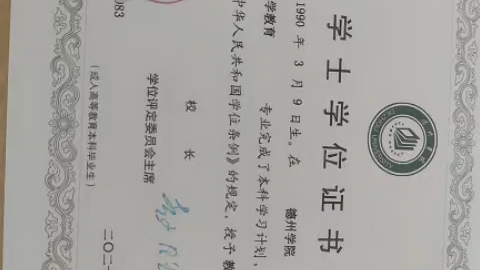 学士学位证书
1990 年 3 月 9 日生。在 德州学院
学教育 专业完成了本科学习计划，
中华人民共和国学位条例》的规定，授予教
校 长
学位评定委员会主席
083
二〇二
（成人高等教育本科毕业生）